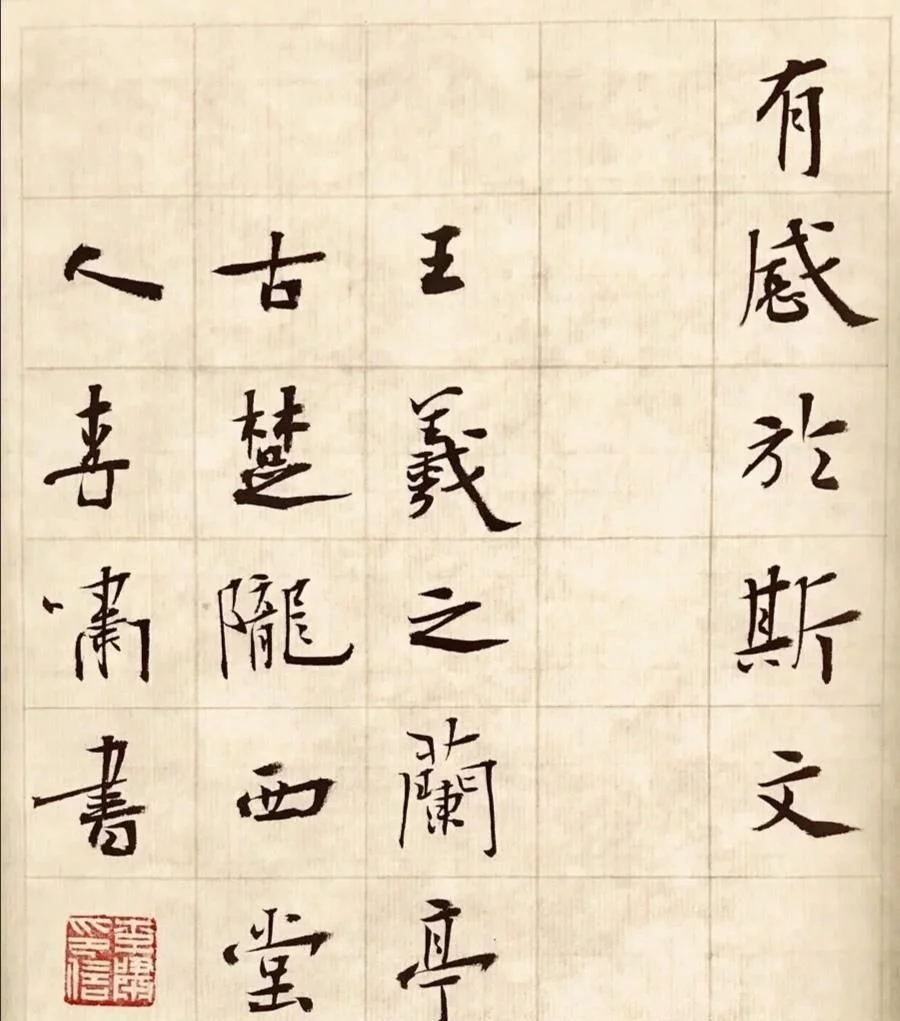 有感於斯文
王羲之蘭亭
古楚隴西堂
人喜嘯書